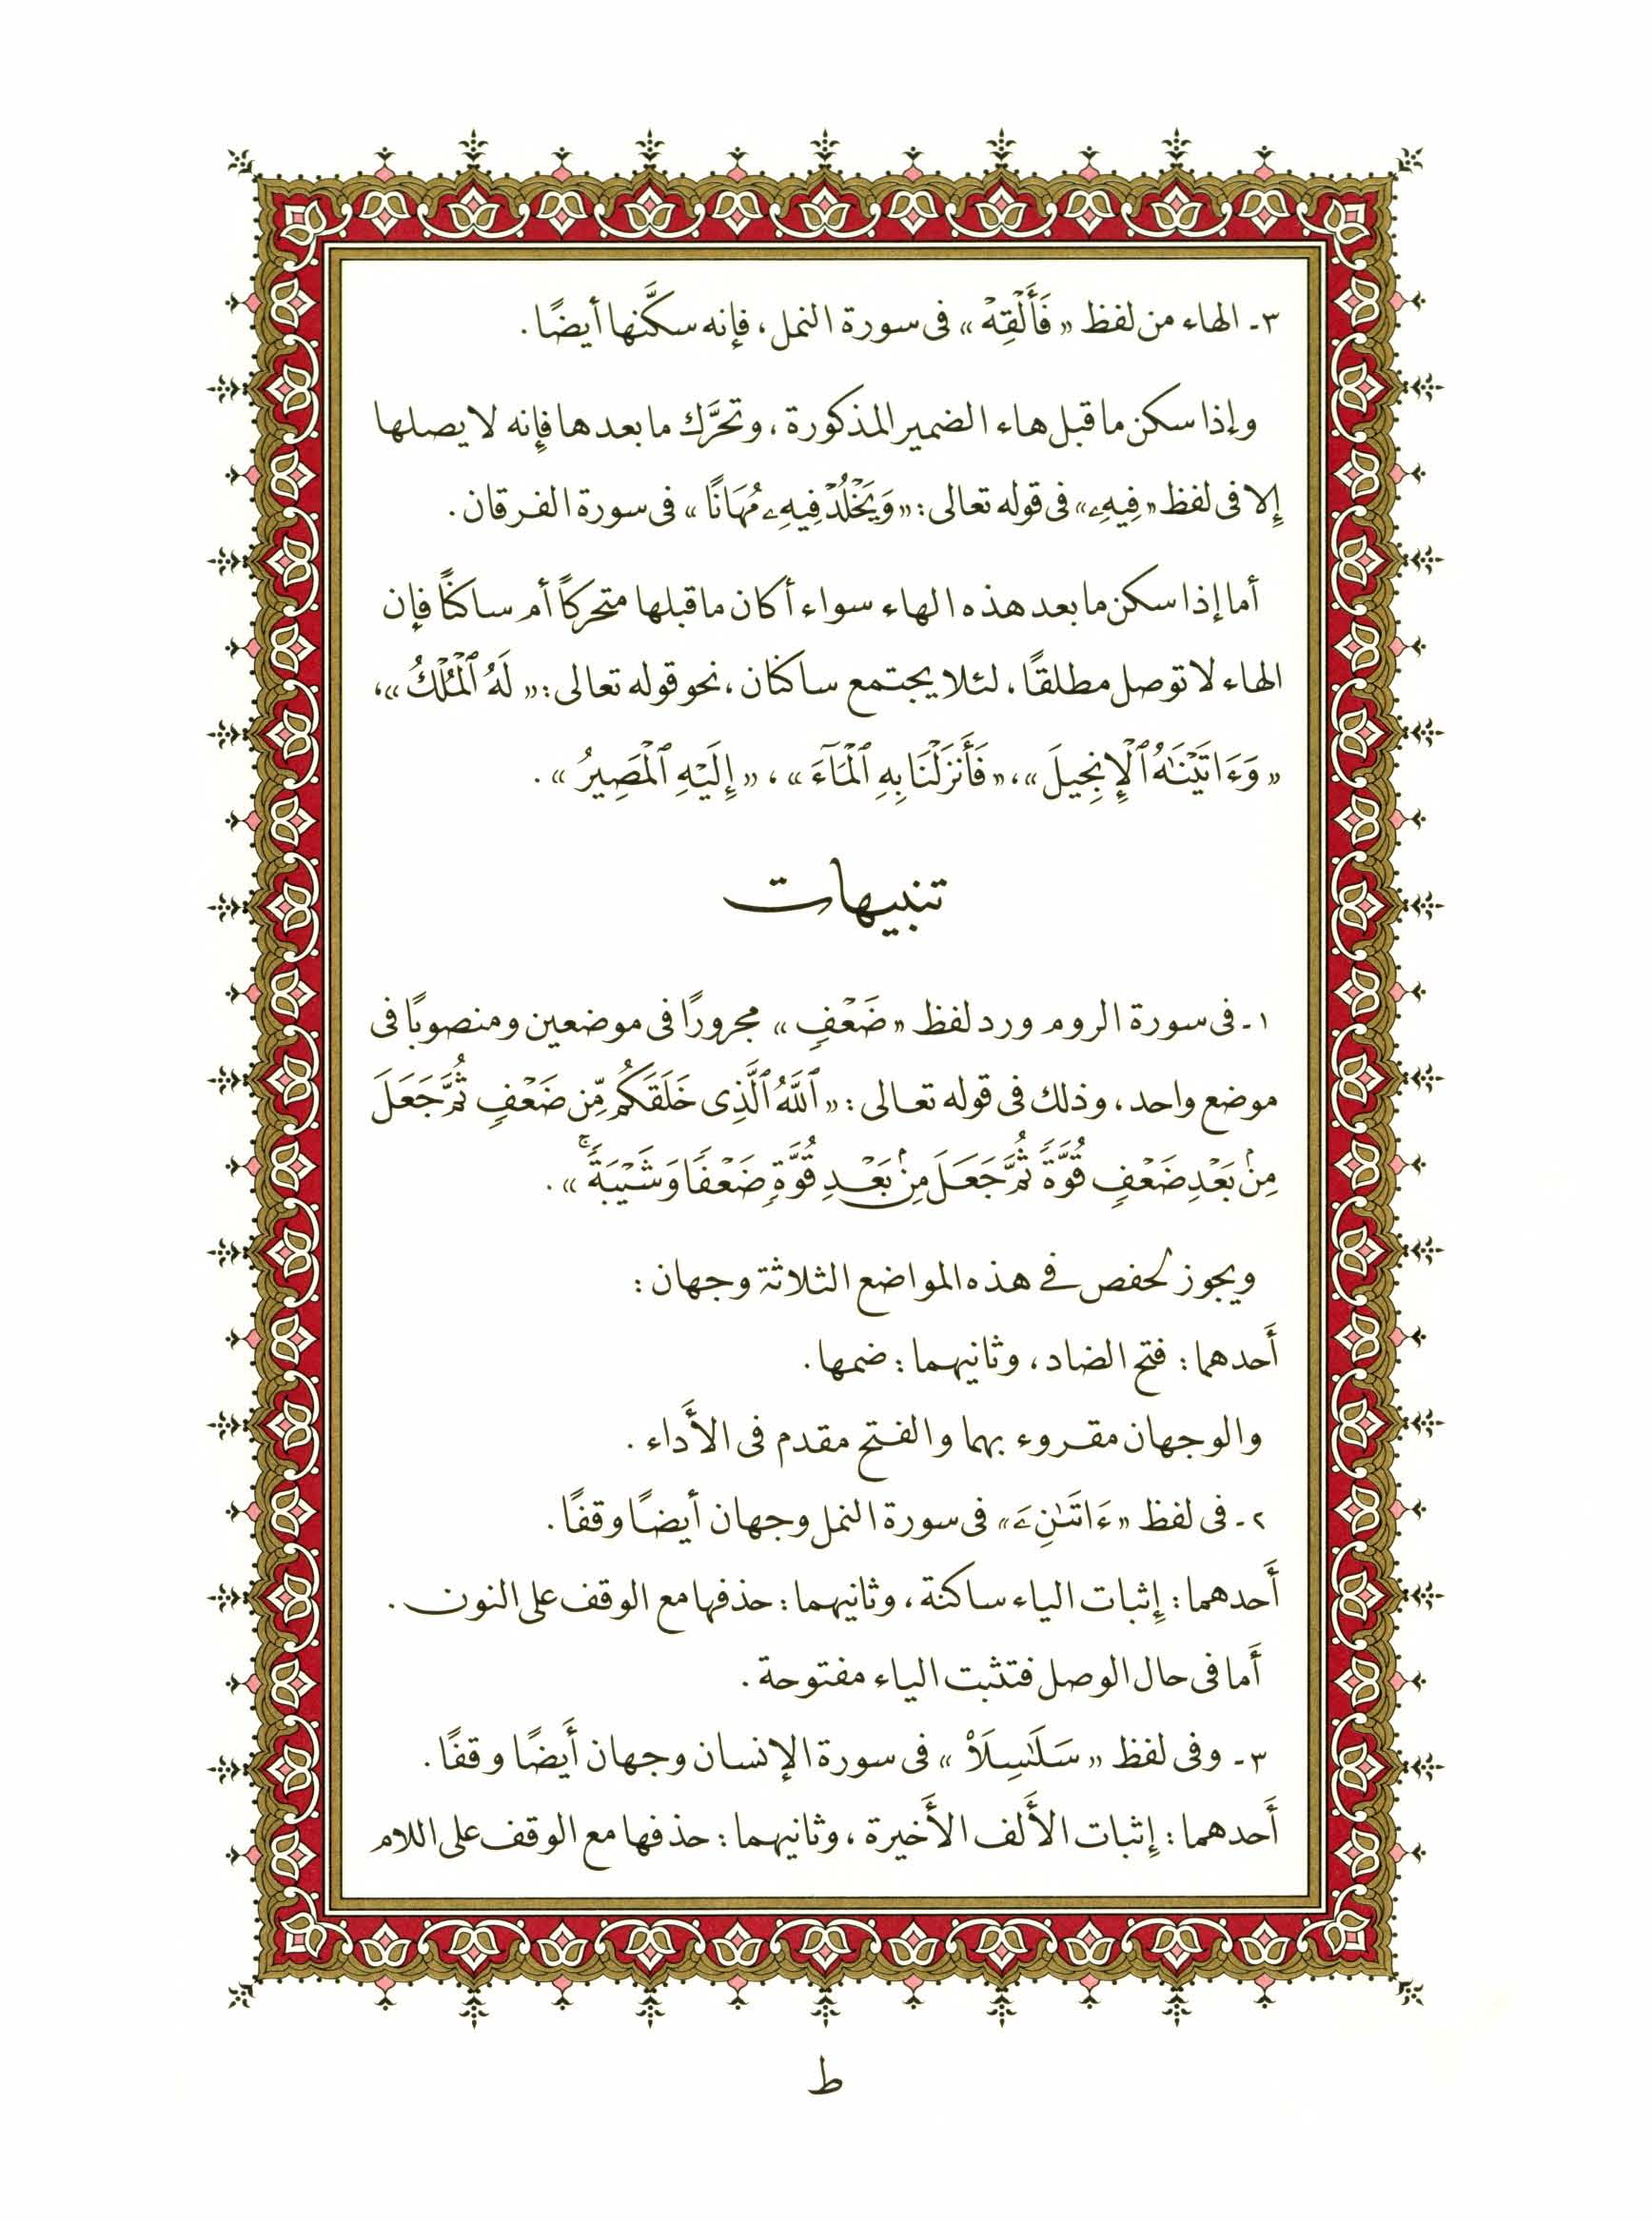 ٣- الهاء من لفظ «فَأَلْقِهْ» فى سورة النمل، فإنه سكَّنها أيضًا.
وإذا سكن ما قبل هاء الضمير المذكورة، وتحرَّك ما بعدها فإنه لا يصلها
إلا فى لفظ «فِيهِۦ» فى قوله تعالى: «وَيَخْلُدْ فِيهِۦ مُهَانًا» فى سورة الفرقان.
أما إذا سكن ما بعد هذه الهاء سواء أكان ما قبلها متحركاً أم ساكنًا فإن
الهاء لا توصل مطلقًا، لئلا يجتمع ساكنان، نحو قوله تعالى: «لَهُ ٱلْمُلْكُ»،
«وَءَاتَيْنَٰهُ ٱلْإِنجِيلَ»، «فَأَنزَلْنَا بِهِ ٱلْمَآءَ»، «إِلَيْهِ ٱلْمَصِيرُ».
تنبيهات
١- فى سورة الروم ورد لفظ «ضَعْفٍ» مجرورًا فى موضعين ومنصوبًا فى
موضع واحد، وذلك فى قوله تعالى: «ٱللَّهُ ٱلَّذِى خَلَقَكُم مِّن ضَعْفٍ ثُمَّ جَعَلَ
مِنۢ بَعْدِ ضَعْفٍ قُوَّةً ثُمَّ جَعَلَ مِنۢ بَعْدِ قُوَّةٍ ضَعْفًا وَشَيْبَةً ۚ».
ويجوز لحفص فى هذه المواضع الثلاثة وجهان:
أَحدهما: فتح الضاد، وثانيهما: ضمها.
والوجهان مقروء بهما والفتح مقدم فى الأَداء.
٢- فى لفظ «ءَاتَىٰنِۦَ» فى سورة النمل وجهان أيضًا وقفًا.
أَحدهما: إِثبات الياء ساكنة، وثانيهما: حذفها مع الوقف على النون.
أَما فى حال الوصل فتثبت الياء مفتوحة.
٣- وفى لفظ «سَلَٰسِلَا۟» فى سورة الإنسان وجهان أَيضًا وقفًا.
أَحدهما: إِثبات الأَلف الأَخيرة، وثانيهما: حذفها مع الوقف على اللام
ط